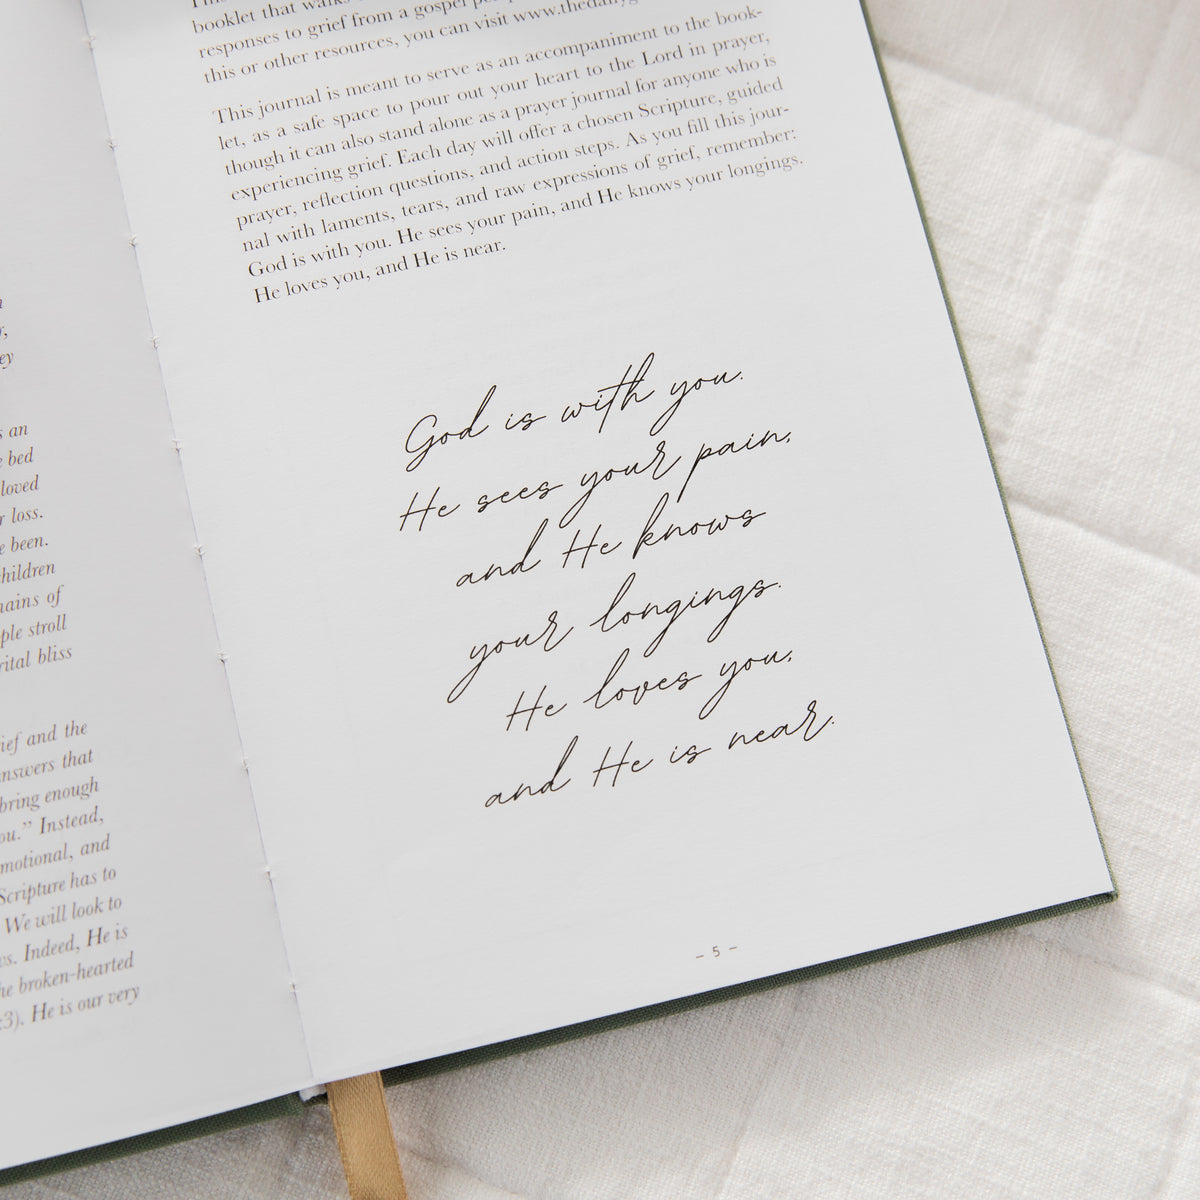 an
bed
loved
loss.
been.
children
of
stroll
bliss
and the
answers that
bring enough
Instead,
and
Scripture has to
We will look to
Indeed, He is
broken-hearted
He is our very
booklet that walks
responses to grief from a gospel
this or other resources, you can visit
This journal is meant to serve as an accompaniment to the book-
let, as a safe space to pour out your heart to the Lord in prayer,
though it can also stand alone as a prayer journal for anyone who is
experiencing grief. Each day will offer a chosen Scripture, guided
prayer, reflection questions, and action steps. As you fill this jour-
nal with laments, tears, and raw expressions of grief, remember:
God is with you. He sees your pain, and He knows your longings.
He loves you, and He is near.
God is with you.
He sees your pain,
and He knows
your longings.
He loves you,
and He is near.
– 5 –